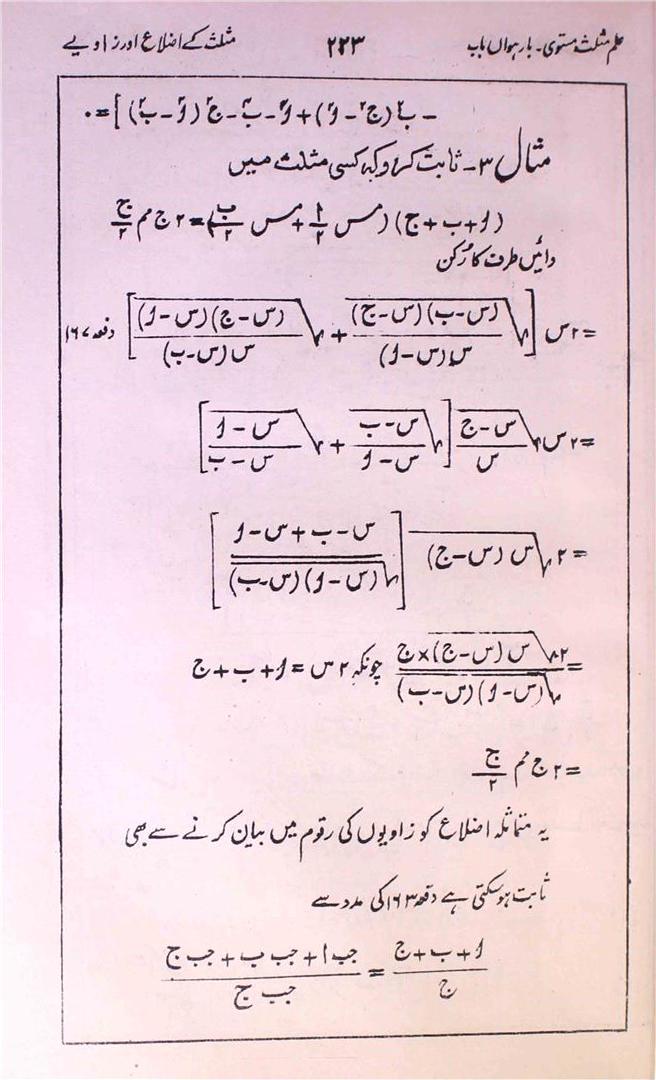 علم مثلث مستوی۔ بارہواں باب ۲۲۳ مثلث کے اضلاع اور زاویے
− ب۲(ج۲ − ا۲) + ا۲ − ب۲ − ج۲ (ا۲ − ب۲)] = ۰
مثال ۳۔ ثابت کرو کہ کسی مثلث میں
(ا + ب + ج) (مس ا/۲ + مس ب/۲) = ۲ ج مم ج/۲
دائیں طرف کا رُکن
= ۲س [√((س−ب)(س−ج))/(س(س−ا)) + √((س−ج)(س−ا))/(س(س−ب))] دفعہ ۱۶۷
= ۲س √(س−ج)/س [√(س−ب)/(س−ا) + √(س−ا)/(س−ب)]
= ۲ √س(س−ج) [(س−ب+س−ا)/√(س−ا)(س−ب)]
= (۲√س(س−ج) × ج)/√(س−ا)(س−ب) چونکہ ۲س = ا + ب + ج
= ۲ ج مم ج/۲
یہ متماثلہ اضلاع کو زاویوں کی رقوم میں بیان کرنے سے بھی
ثابت ہو سکتی ہے دفعہ ۱۶۳ کی مدد سے
(ا + ب + ج)/ج = (جب ا + جب ب + جب ج)/جب ج